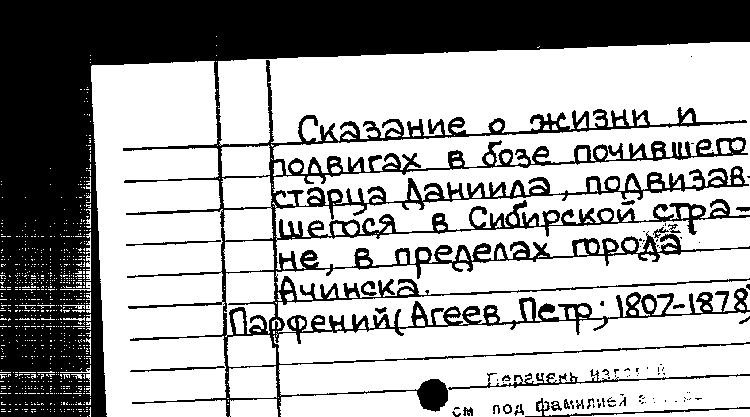 Сказание о жизни и
подвигах в бозе почившего
старца Даниила, подвизав-
шегося в Сибирской стра-
не, в пределах города
Ачинска.
Парфений (Агеев, Петр; 1807-1878)
Перечень изданий
см под фамилией